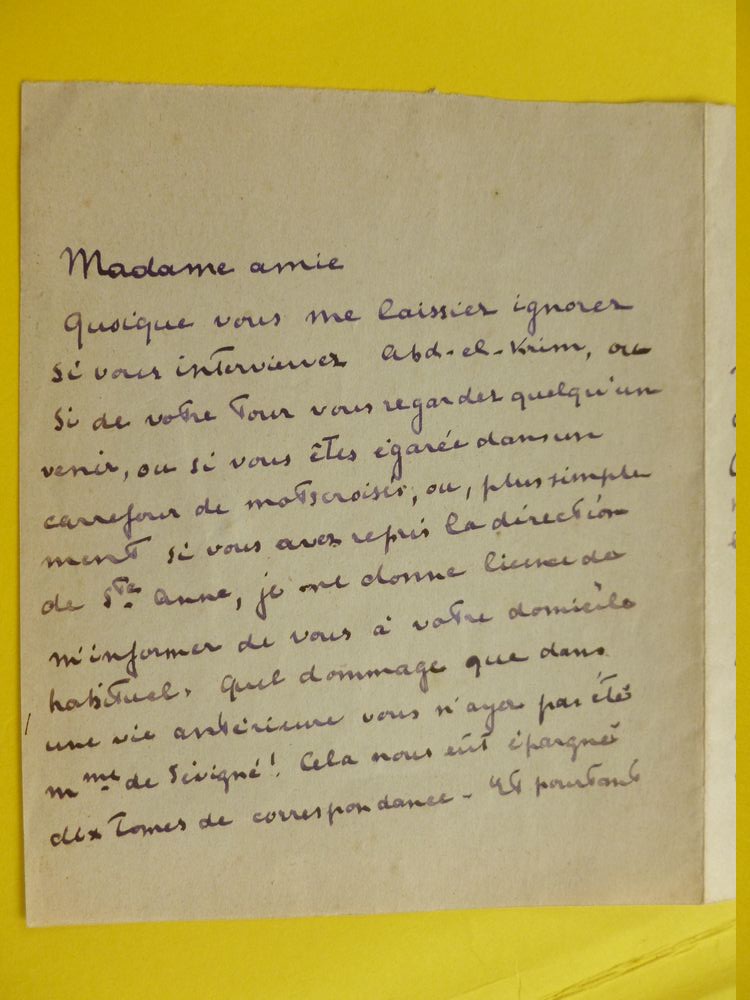 Madame amie
Quoique vous me laissiez ignorer
si vous interviewez Abd-el-Krim, ou
si de votre tour vous regardez quelqu'un
venir, ou si vous êtes égarée dans un
carrefour de mots croisés, ou, plus simple
ment si vous avez repris la direction
de Ste Anne, je me donne licence de
m'informer de vous à votre domicile
habituel. Quel dommage que dans
une vie antérieure vous n'ayez pas été
Mme de Sévigné! Cela nous eût épargné
dix tomes de correspondance - Et pourtant